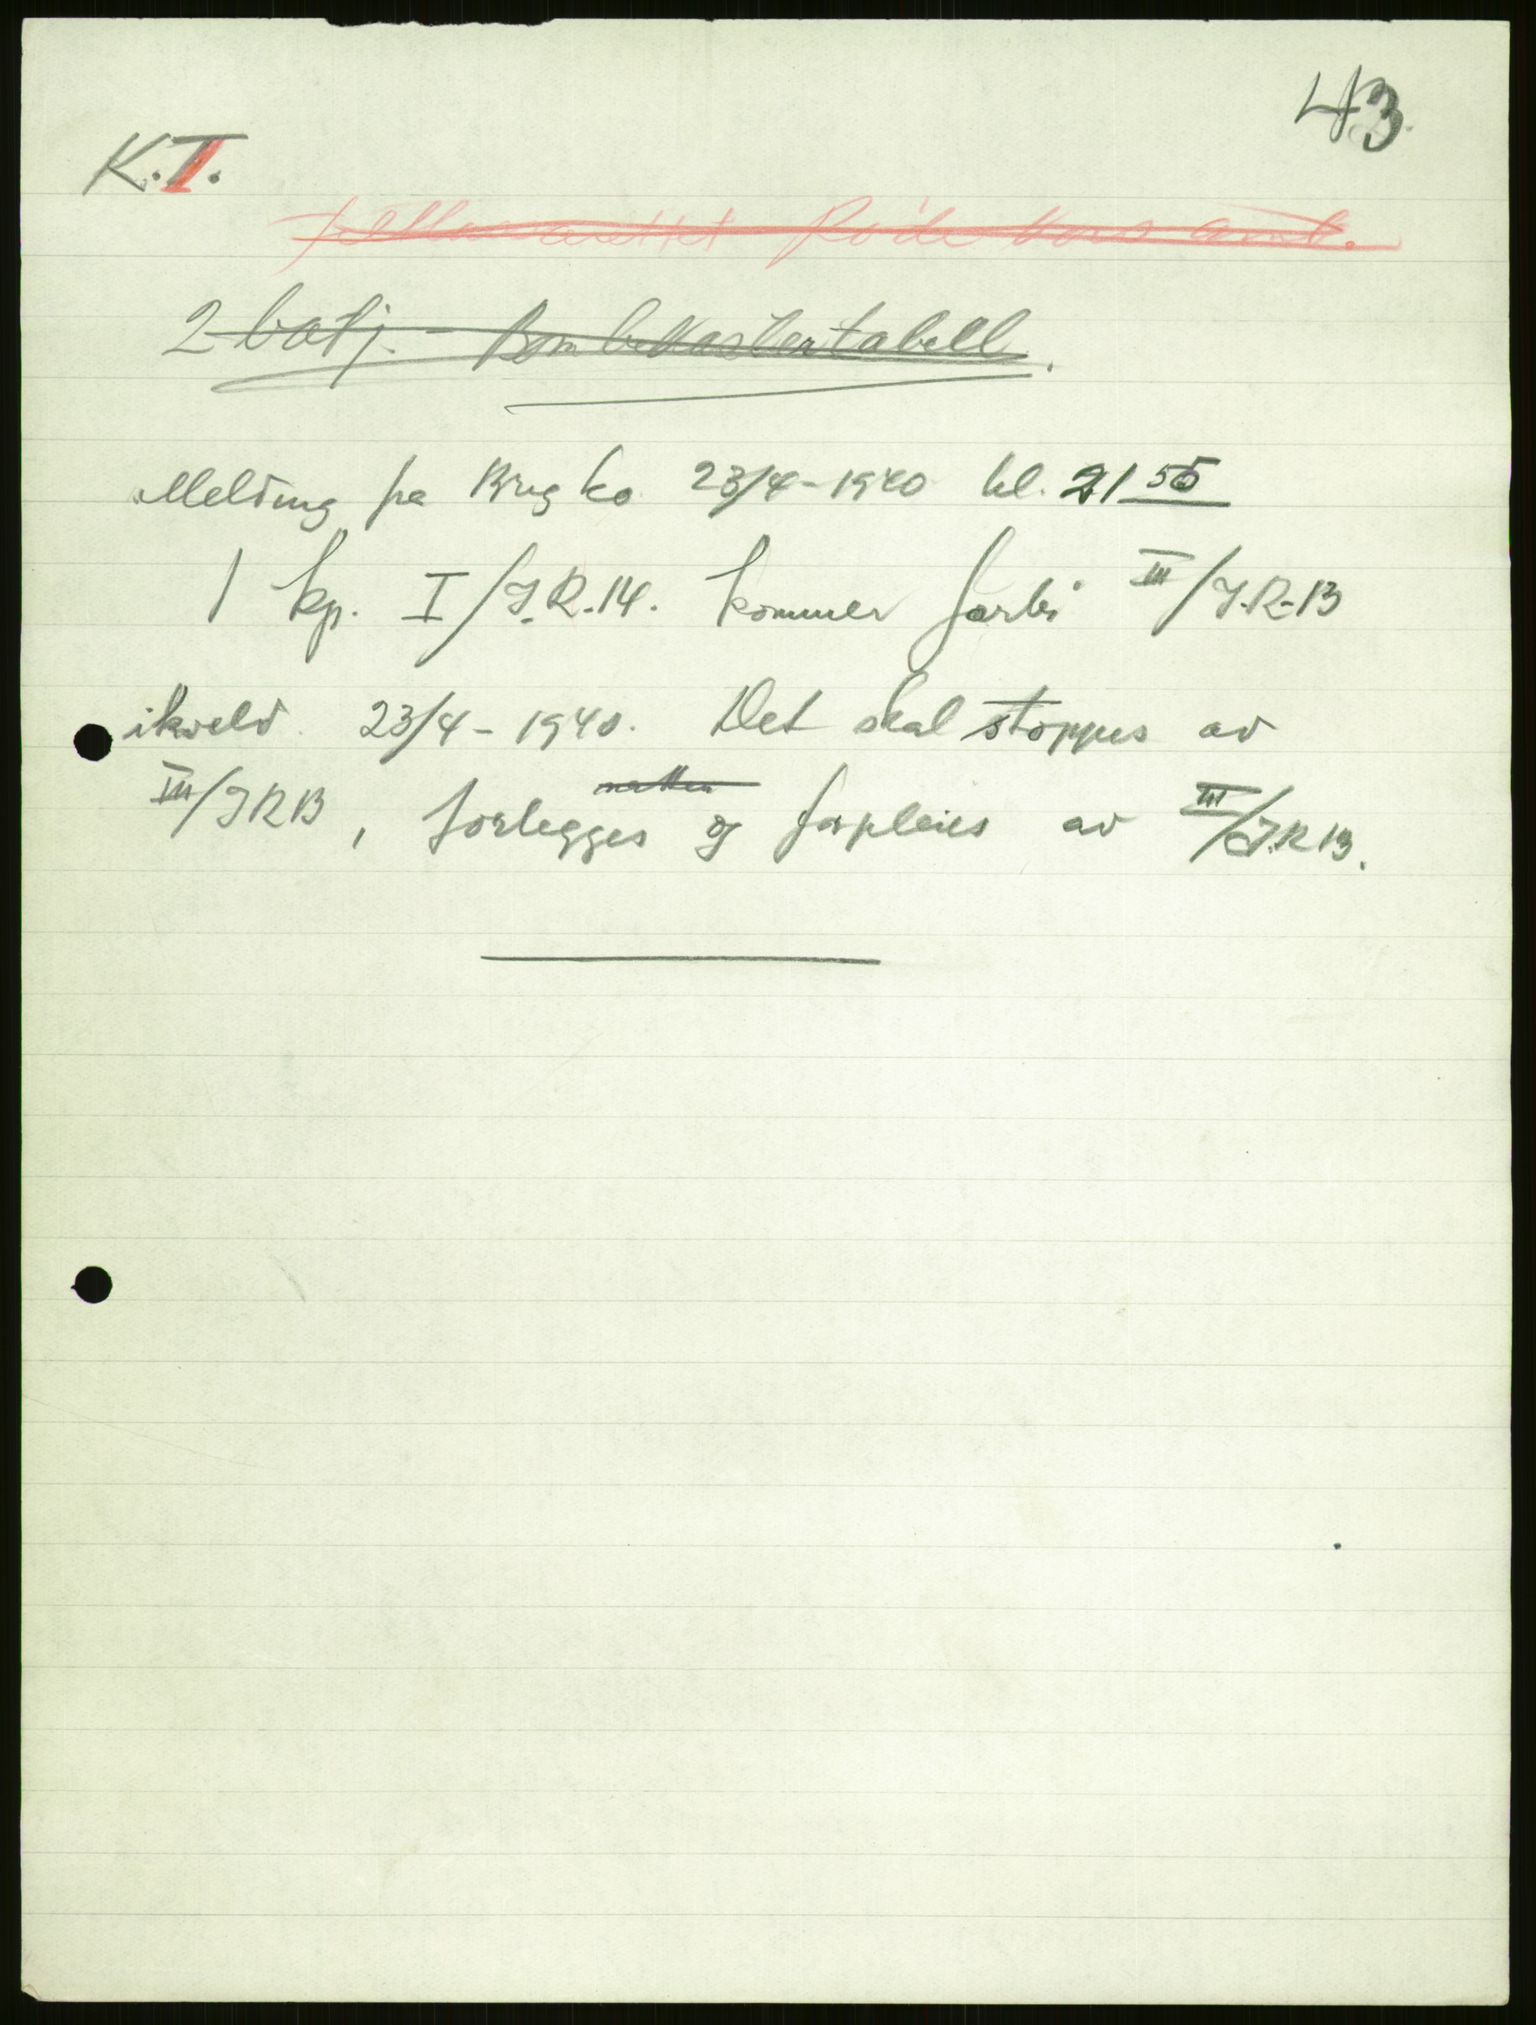 43
K.T.
Røde Kors
2 batj. - Bombekastertabell.
Melding fra Brig ko 23/4-1940 kl. 21 55
1 kp. I/J.R.14. kommer forbi III/J.R-13
ikveld 23/4-1940. Det skal stoppes av
III/JR13, forlegges og forpleies av III/J.R 13.